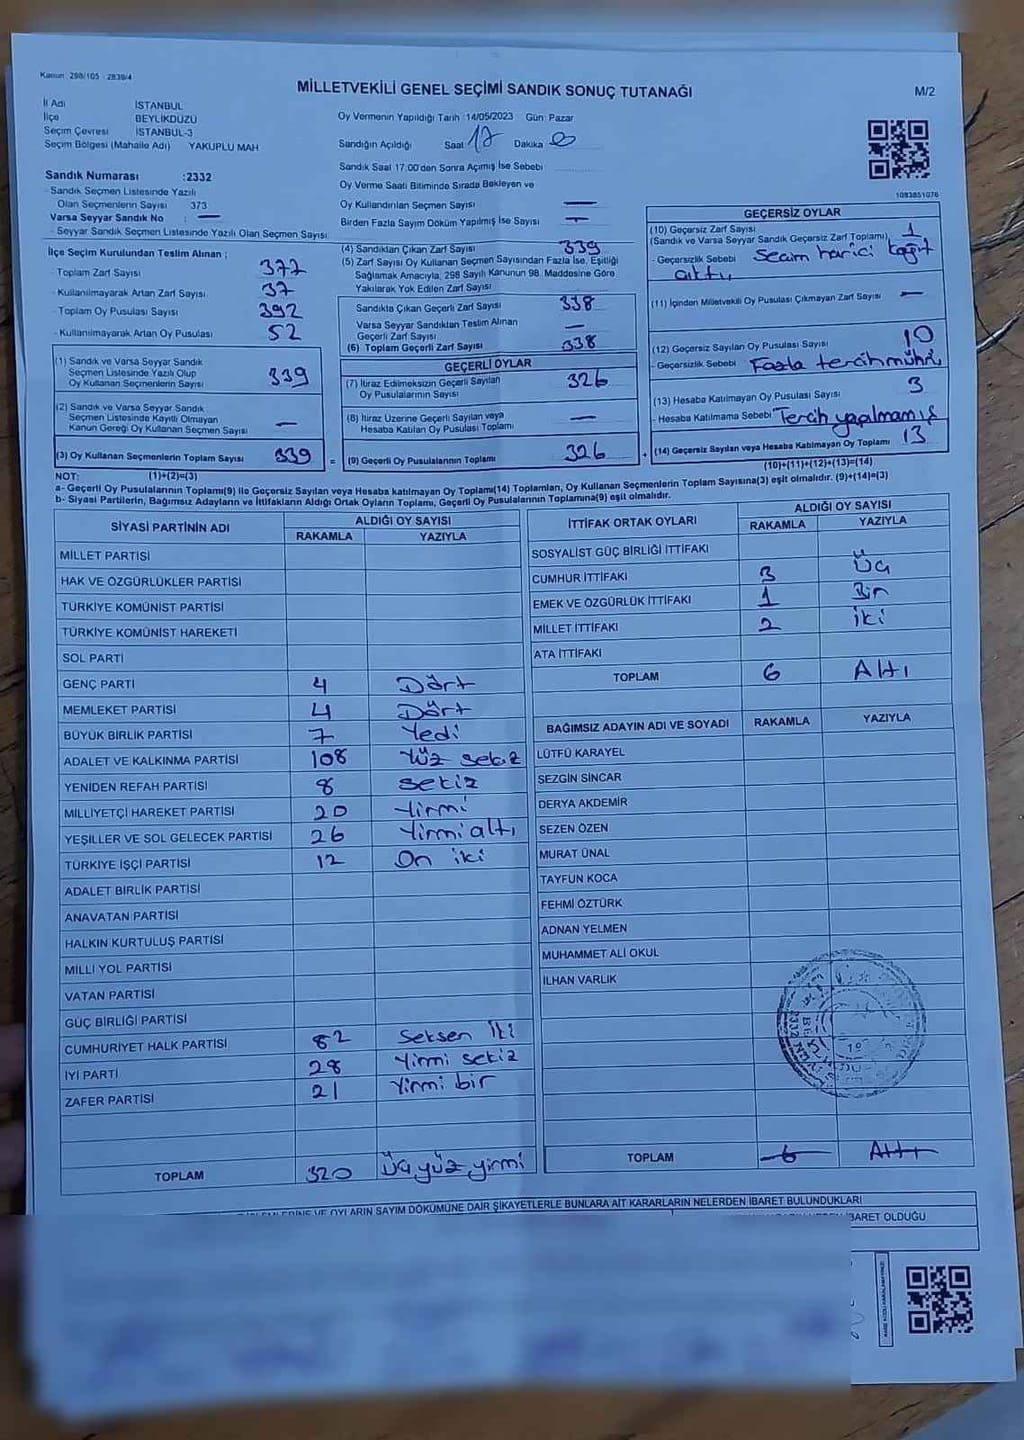 Kanun: 298/105 - 2839/4
MİLLETVEKİLİ GENEL SEÇİMİ SANDIK SONUÇ TUTANAĞI
M/2
İl Adı İSTANBUL
İlçe BEYLİKDÜZÜ
Seçim Çevresi İSTANBUL-3
Seçim Bölgesi (Mahalle Adı) YAKUPLU MAH
Oy Vermenin Yapıldığı Tarih :14/05/2023 Gün: Pazar
Sandığın Açıldığı Saat 17 Dakika 0
Sandık Saat 17:00'den Sonra Açımış İse Sebebi
Oy Verme Saati Bitiminde Sırada Bekleyen ve
Oy Kullandırılan Seçmen Sayısı —
Birden Fazla Sayım Döküm Yapılmış İse Sayısı —
1083851076
Sandık Numarası :2332
- Sandık Seçmen Listesinde Yazılı
Olan Seçmenlerin Sayısı 373
Varsa Seyyar Sandık No : —
- Seyyar Sandık Seçmen Listesinde Yazılı Olan Seçmen Sayısı:
İlçe Seçim Kurulundan Teslim Alınan ;
- Toplam Zarf Sayısı 377
- Kullanılmayarak Artan Zarf Sayısı 37
- Toplam Oy Pusulası Sayısı 392
- Kullanılmayarak Artan Oy Pusulası 52
(1) Sandık ve Varsa Seyyar Sandık
Seçmen Listesinde Yazılı Olup
Oy Kullanan Seçmenlerin Sayısı 339
(2) Sandık ve Varsa Seyyar Sandık
Seçmen Listesinde Kayıtlı Olmayan
Kanun Gereği Oy Kullanan Seçmen Sayısı —
(3) Oy Kullanan Seçmenlerin Toplam Sayısı 339 =
(4) Sandıktan Çıkan Zarf Sayısı 339
(5) Zarf Sayısı Oy Kullanan Seçmen Sayısından Fazla İse, Eşitliği
Sağlamak Amacıyla, 298 Sayılı Kanunun 98. Maddesine Göre
Yakılarak Yok Edilen Zarf Sayısı
Sandıkta Çıkan Geçerli Zarf Sayısı 338
Varsa Seyyar Sandıktan Teslim Alınan
Geçerli Zarf Sayısı —
(6) Toplam Geçerli Zarf Sayısı 338
GEÇERLİ OYLAR
(7) İtiraz Edilmeksizin Geçerli Sayılan
Oy Pusulalarının Sayısı 326
(8) İtiraz Üzerine Geçerli Sayılan veya
Hesaba Katılan Oy Pusulası Toplamı —
(9) Geçerli Oy Pusulalarının Toplamı 326 +
GEÇERSİZ OYLAR
(10) Geçersiz Zarf Sayısı
(Sandık ve Varsa Seyyar Sandık Geçersiz Zarf Toplamı) 1
- Geçersizlik Sebebi Secim harici kağıt
çıktı
(11) İçinden Milletvekili Oy Pusulası Çıkmayan Zarf Sayısı —
(12) Geçersiz Sayılan Oy Pusulası Sayısı 10
- Geçersizlik Sebebi Fazla tercih mührü
(13) Hesaba Katılmayan Oy Pusulası Sayısı 3
- Hesaba Katılmama Sebebi Tercih yapılmamış
(14) Geçersiz Sayılan veya Hesaba Katılmayan Oy Toplamı 13
(10)+(11)+(12)+(13)=(14)
NOT: (1)+(2)=(3)
a- Geçerli Oy Pusulalarının Toplamı(9) ile Geçersiz Sayılan veya Hesaba katılmayan Oy Toplamı(14) Toplamları, Oy Kullanan Seçmenlerin Toplam Sayısına(3) eşit olmalıdır. (9)+(14)=(3)
b- Siyasi Partilerin, Bağımsız Adayların ve İttifakların Aldığı Ortak Oyların Toplamı, Geçerli Oy Pusulalarının Toplamına(9) eşit olmalıdır.
SİYASİ PARTİNİN ADI ALDIĞI OY SAYISI
RAKAMLA YAZIYLA
MİLLET PARTİSİ
HAK VE ÖZGÜRLÜKLER PARTİSİ
TÜRKİYE KOMÜNİST PARTİSİ
TÜRKİYE KOMÜNİST HAREKETİ
SOL PARTİ
GENÇ PARTİ 4 Dört
MEMLEKET PARTİSİ 4 Dört
BÜYÜK BİRLİK PARTİSİ 7 Yedi
ADALET VE KALKINMA PARTİSİ 108 Yüz sekiz
YENİDEN REFAH PARTİSİ 8 sekiz
MİLLİYETÇİ HAREKET PARTİSİ 20 Yirmi
YEŞİLLER VE SOL GELECEK PARTİSİ 26 Yirmi altı
TÜRKİYE İŞÇİ PARTİSİ 12 On iki
ADALET BİRLİK PARTİSİ
ANAVATAN PARTİSİ
HALKIN KURTULUŞ PARTİSİ
MİLLİ YOL PARTİSİ
VATAN PARTİSİ
GÜÇ BİRLİĞİ PARTİSİ
CUMHURİYET HALK PARTİSİ 82 Seksen İki
İYİ PARTİ 28 Yirmi sekiz
ZAFER PARTİSİ 21 Yirmi bir
TOPLAM 320 Üç yüz yirmi
İTTİFAK ORTAK OYLARI ALDIĞI OY SAYISI
RAKAMLA YAZIYLA
SOSYALİST GÜÇ BİRLİĞİ İTTİFAKI
CUMHUR İTTİFAKI 3 Üç
EMEK VE ÖZGÜRLÜK İTTİFAKI 1 Bir
MİLLET İTTİFAKI 2 iki
ATA İTTİFAKI
TOPLAM 6 Altı
BAĞIMSIZ ADAYIN ADI VE SOYADI RAKAMLA YAZIYLA
LÜTFÜ KARAYEL
SEZGİN SİNCAR
DERYA AKDEMİR
SEZEN ÖZEN
MURAT ÜNAL
TAYFUN KOCA
FEHMİ ÖZTÜRK
ADNAN YELMEN
MUHAMMET ALİ OKUL
İLHAN VARLIK
TOPLAM 6 Altı
VE OYLARIN SAYIM DÖKÜMÜNE DAİR ŞİKAYETLERLE BUNLARA AİT KARARLARIN NELERDEN İBARET BULUNDUKLARI
İBARET OLDUĞU